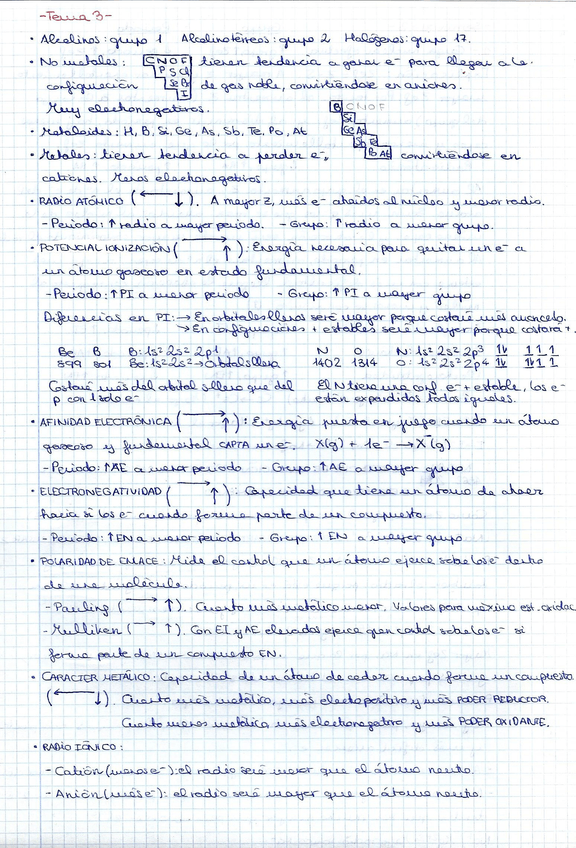 -Tema 3-
· Alcalinos: grupo 1 Alcalinotérreos: grupo 2 Halógenos: grupo 17.
· No metales: C N O F tienen tendencia a ganar e- para llegar a la
P S Cl
configuración Se Br de gas noble, convirtiéndose en aniones.
I
Muy electronegativos. B C N O F
Si
· Metaloides: H, B, Si, Ge, As, Sb, Te, Po, At Ge As
Sb Te
· Metales: tienen tendencia a perder e-, Po At convirtiéndose en
cationes. Menos electronegativos.
· RADIO ATÓMICO (← ↓). A mayor Z, más e- atraídos al núcleo y menor radio.
- Periodo: ↑ radio a mayor periodo. - Grupo: ↑ radio a menor grupo.
· POTENCIAL IONIZACIÓN (→ ↑): Energía necesaria para quitar un e- a
un átomo gaseoso en estado fundamental.
- Periodo: ↑ PI a menor periodo - Grupo: ↑ PI a mayor grupo
Diferencias en PI: → En orbitales llenos será mayor porque costará más arrancarlo.
→ En configuraciones + estables será mayor porque costará +.
Be B B: 1s² 2s² 2p¹ N O N: 1s² 2s² 2p³ 1↓ 1 1 1
899 801 Be: 1s² 2s² → orbital s lleno 1402 1314 O: 1s² 2s² 2p⁴ 1↓ 1↓ 1 1
Costará más del orbital s lleno que del El N tiene una conf. e- + estable, los e-
p con 1 solo e- están expandidos todos iguales.
· AFINIDAD ELECTRÓNICA (→ ↑): Energía puesta en juego cuando un átomo
gaseoso y fundamental CAPTA un e-. X(g) + 1e- → X-(g)
- Periodo: ↑ AE a menor periodo - Grupo: ↑ AE a mayor grupo
· ELECTRONEGATIVIDAD (→ ↑): Capacidad que tiene un átomo de atraer
hacia sí los e- cuando forma parte de un compuesto.
- Periodo: ↑ EN a menor periodo - Grupo: ↑ EN a mayor grupo
· POLARIDAD DE ENLACE: Mide el control que un átomo ejerce sobre los e- dentro
de una molécula.
- Pauling (→ ↑). Cuanto más metálico menor. Valores para máximo est. oxidac
- Mulliken (→ ↑). Con EI y AE elevados ejerce gran control sobre los e- si
forma parte de un compuesto EN.
· CARACTER METÁLICO: Capacidad de un átomo de ceder cuando forma un compuesto
(← ↓). Cuanto más metálico, más electropositivo y más PODER REDUCTOR.
Cuanto menos metálico, más electronegativo y más PODER OXIDANTE.
· RADIO IÓNICO:
- Catión (menos e-): el radio será menor que el átomo neutro.
- Anión (más e-): el radio será mayor que el átomo neutro.